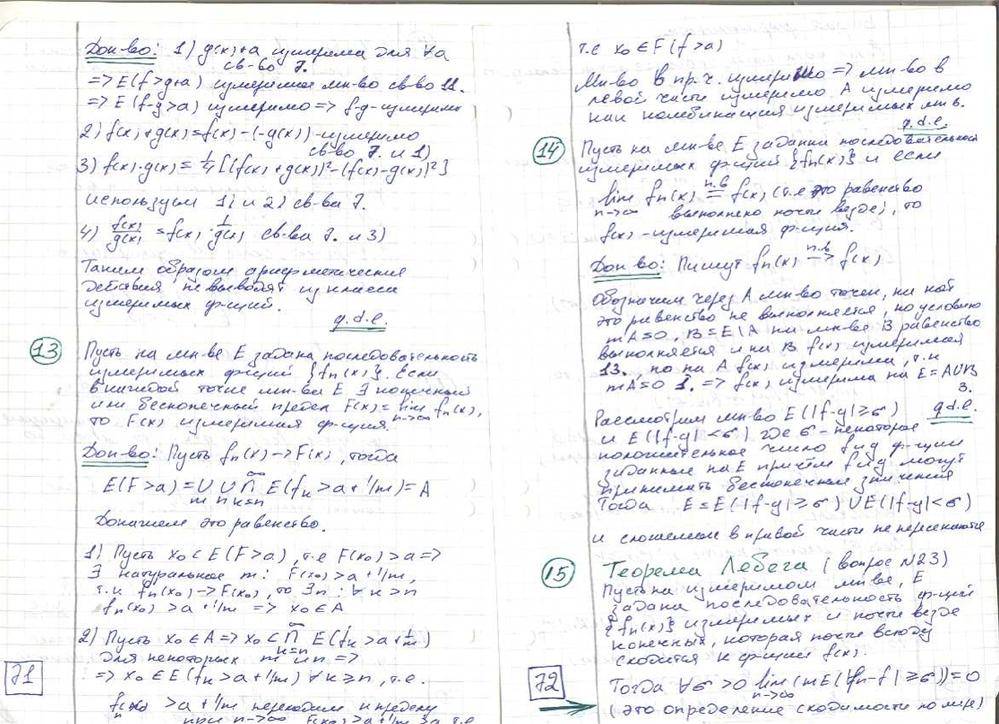 Док-во: 1) g(x)+a измерима для ∀a
св-во 7.
=> E(f>g+a) измеримое мн-во св-во 11.
=> E(f-g>a) измеримо => f-g-измерима
2) f(x)+g(x)=f(x)-(-g(x))-измеримо
св-во 7. и 1)
3) f(x)·g(x)=1/4[(f(x)+g(x))²-(f(x)-g(x))²]
используем 1) и 2) св-ва 7.
4) f(x)/g(x)=f(x)·1/g(x) св-ва 7. и 3)
Таким образом арифметические
действия не выводят из класса
измеримых ф-ций.
q.d.e.
13 Пусть на мн-ве E задана последовательность
измеримых ф-ций {fn(x)}. Если
в каждой точке мн-ва E ∃ конечный
или бесконечный предел F(x)=lim n->∞ fn(x),
то F(x) измеримая ф-ция.
Док-во: Пусть fn(x)->F(x), тогда
E(F>a)=∪m ∪n ∞∩k=n E(fk>a+1/m)=A
Докажем это равенство.
1) Пусть x0⊂E(F>a), т.е F(x0)>a=>
∃ натуральное m: F(x0)>a+1/m,
т.к fn(x0)->F(x0), то ∃n: ∀k>n
fn(x0)>a+1/m => x0∈A
2) Пусть x0∈A=>x0⊂ ∞∩k=n E(fk>a+1/m)
для некоторых m и n =>
=> x0∈E(fk>a+1/m) ∀k≥n, т.е.
>a+1/m переходим к пределу
при n->∞ F(x0)>a+1/m >a т.е.
71
т.е x0∈F(f>a)
Мн-во в пр.ч. измеримо => мн-во в
левой части измеримо A измеримо
как комбинация измеримых мн-в.
q.d.e.
14 Пусть на мн-ве E задана последовательность
измеримых ф-ций {fn(x)} и если
lim n->∞ fn(x) п.в = f(x) (т.е это равенство
выполнено почти везде), то
f(x)-измеримая ф-ция.
Док-во: Пишут fn(x) п.в -> f(x)
Обозначим через A мн-во точек, на кот
это равенство не выполняется, по условию
mA=0, B=E\A на мн-ве B равенство
выполняется и на B f(x) измеримая
13. но на A f(x) измерима, т.к
mA=0 1. => f(x) измерима на E=A∪B
3.
q.d.e.
Рассмотрим мн-во E(|f-g|≥σ)
и E(|f-g|<σ) где σ-некоторое
положительное число f и g ф-ции
заданные на E причём f и g могут
принимать бесконечные значения
Тогда E=E(|f-g|≥σ)∪E(|f-g|<σ)
и слагаемые в правой части не пересекаются
15 Теорема Лебега (вопрос N23)
Пусть на измеримом мн-ве, E
задана последовательность ф-ций
{fn(x)} измеримых и почти везде
конечных, которая почти всюду
сходится к ф-ции f(x).
Тогда ∀σ>0 lim n->∞ (mE(|fn-f|≥σ))=0
(это определение сходимости по мере)
72